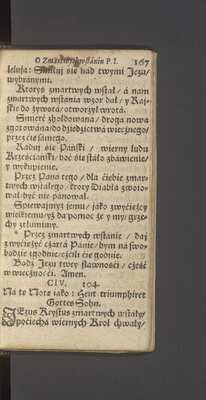 O Zmartwychwstániu P. J. 167
leluja: Smiłuj sie nád twymi Jezu/
wybránymi.
Ktoryś zmartwych wstał / á nam
zmartwych wstánia wzor dał / y Ráy-
skie do żywotá / otworzył wrotá.
Smierć zhołdowána / droga nowa
zgotowána / do dziedzictwá wiecznego/
przez cie sámego.
Ráduy sie Páński / wierny ludu
Krześćiáński / boć sie stáło zbáwienie/
y wykupienie.
Przez Páná tego / dla ciebie zmar-
twych wstáłego / ktory Dyabłá zwoio-
wał / być nie pánował.
Spiewaymyż jemu / jáko zwyćiężcy
wielkiemu / yż da pomoc że y my / grze-
chy zstłumimy.
Przez zmartwych wstánie / day
zwyćiężyć czártá Pánie / bym ná swo-
bodzie zgodnie / czćili cie godnie.
Bądź Jezu twey sławnośći / cześć
w wiecznośći. Amen.
CLV. 104.
Ná te Note jáko : Heut triumphiret
Gottes Sohn.
JEzus Krystus zmartwychwstały/
poćiechá wiernych Krol chwały/